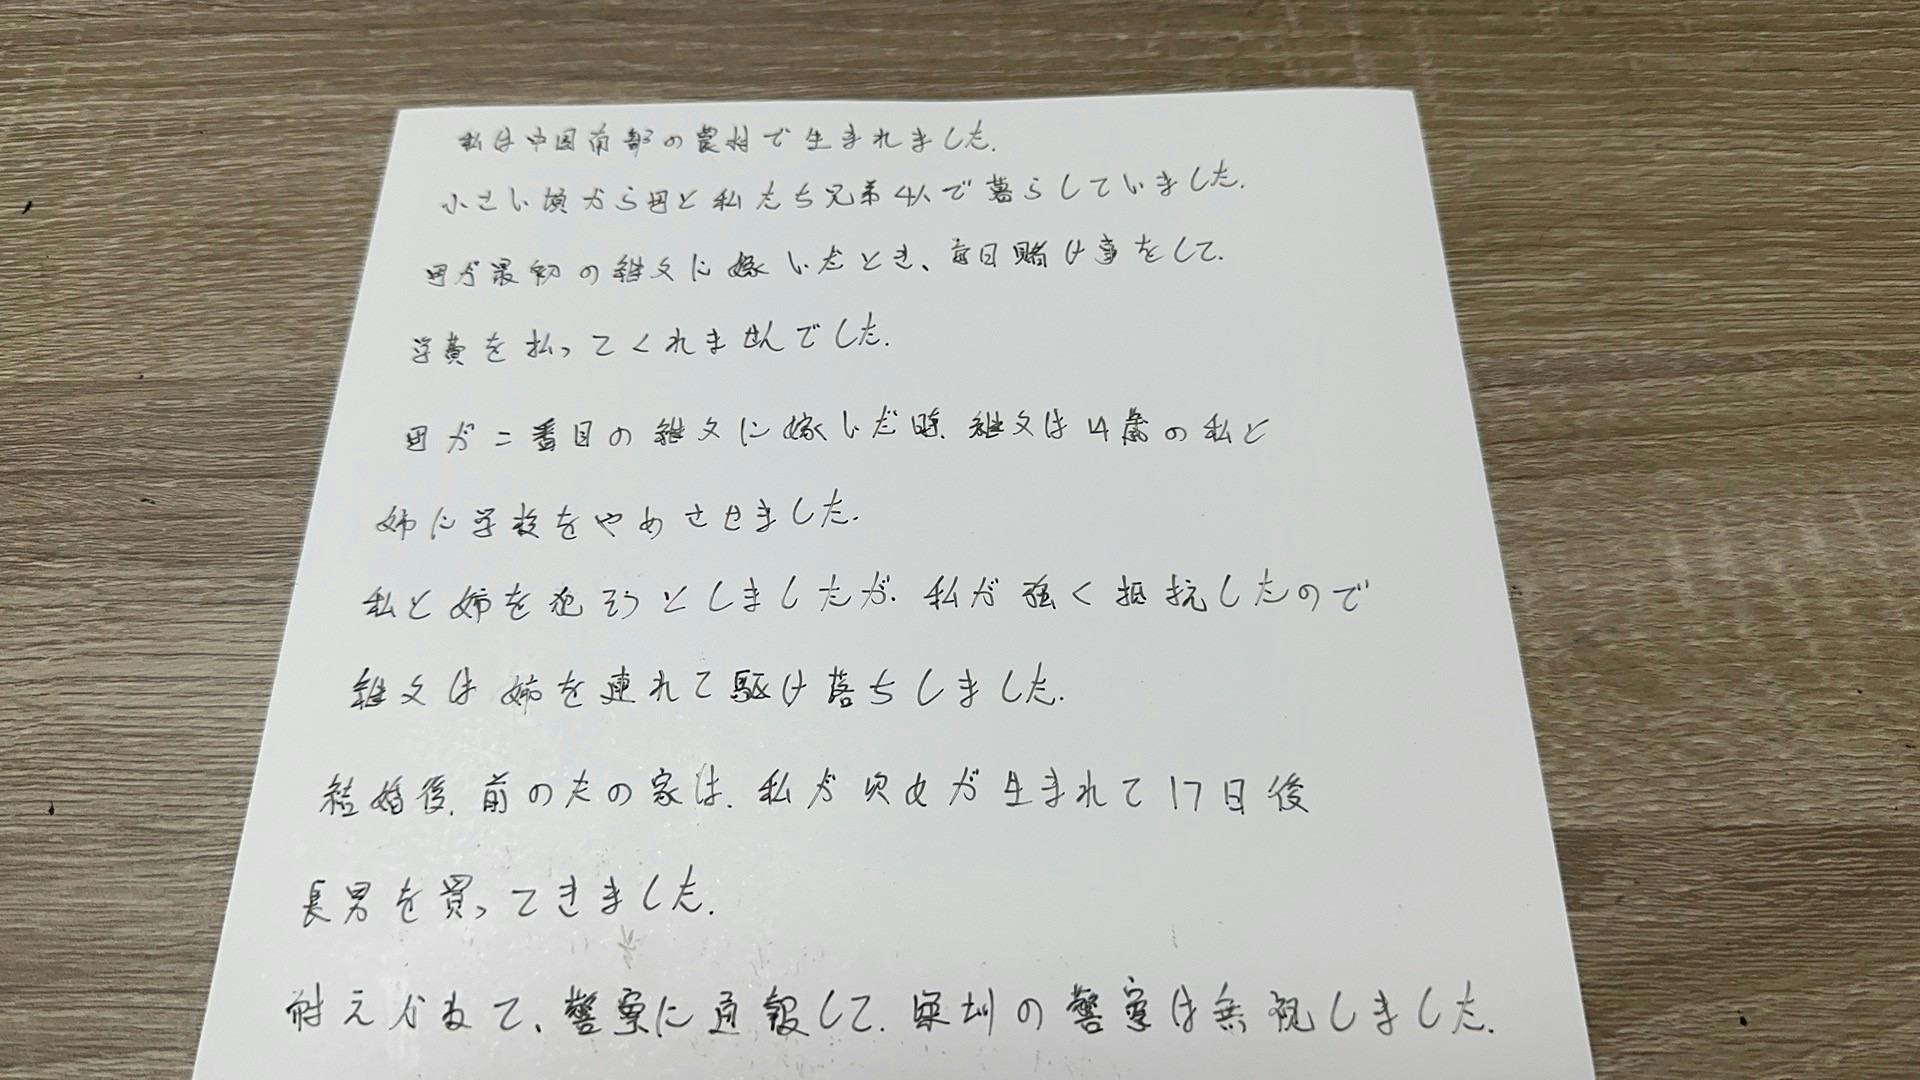 私は中国南部の農村で生まれました.
小さい頃から母と私たち兄弟4人で暮らしていました.
母が最初の継父に嫁いだとき、毎日賭け事をして.
学費を払ってくれませんでした.
母が二番目の継父に嫁いだ時.継父は14歳の私と
姉に学校をやめさせました.
私と姉を犯そうとしましたが.私が強く抵抗したので
継父は姉を連れて駆け落ちしました.
結婚後.前の夫の家は.私が次女が生まれて17日後
長男を買ってきました.
耐えかねて、警察に通報して.深圳の警察は無視しました.